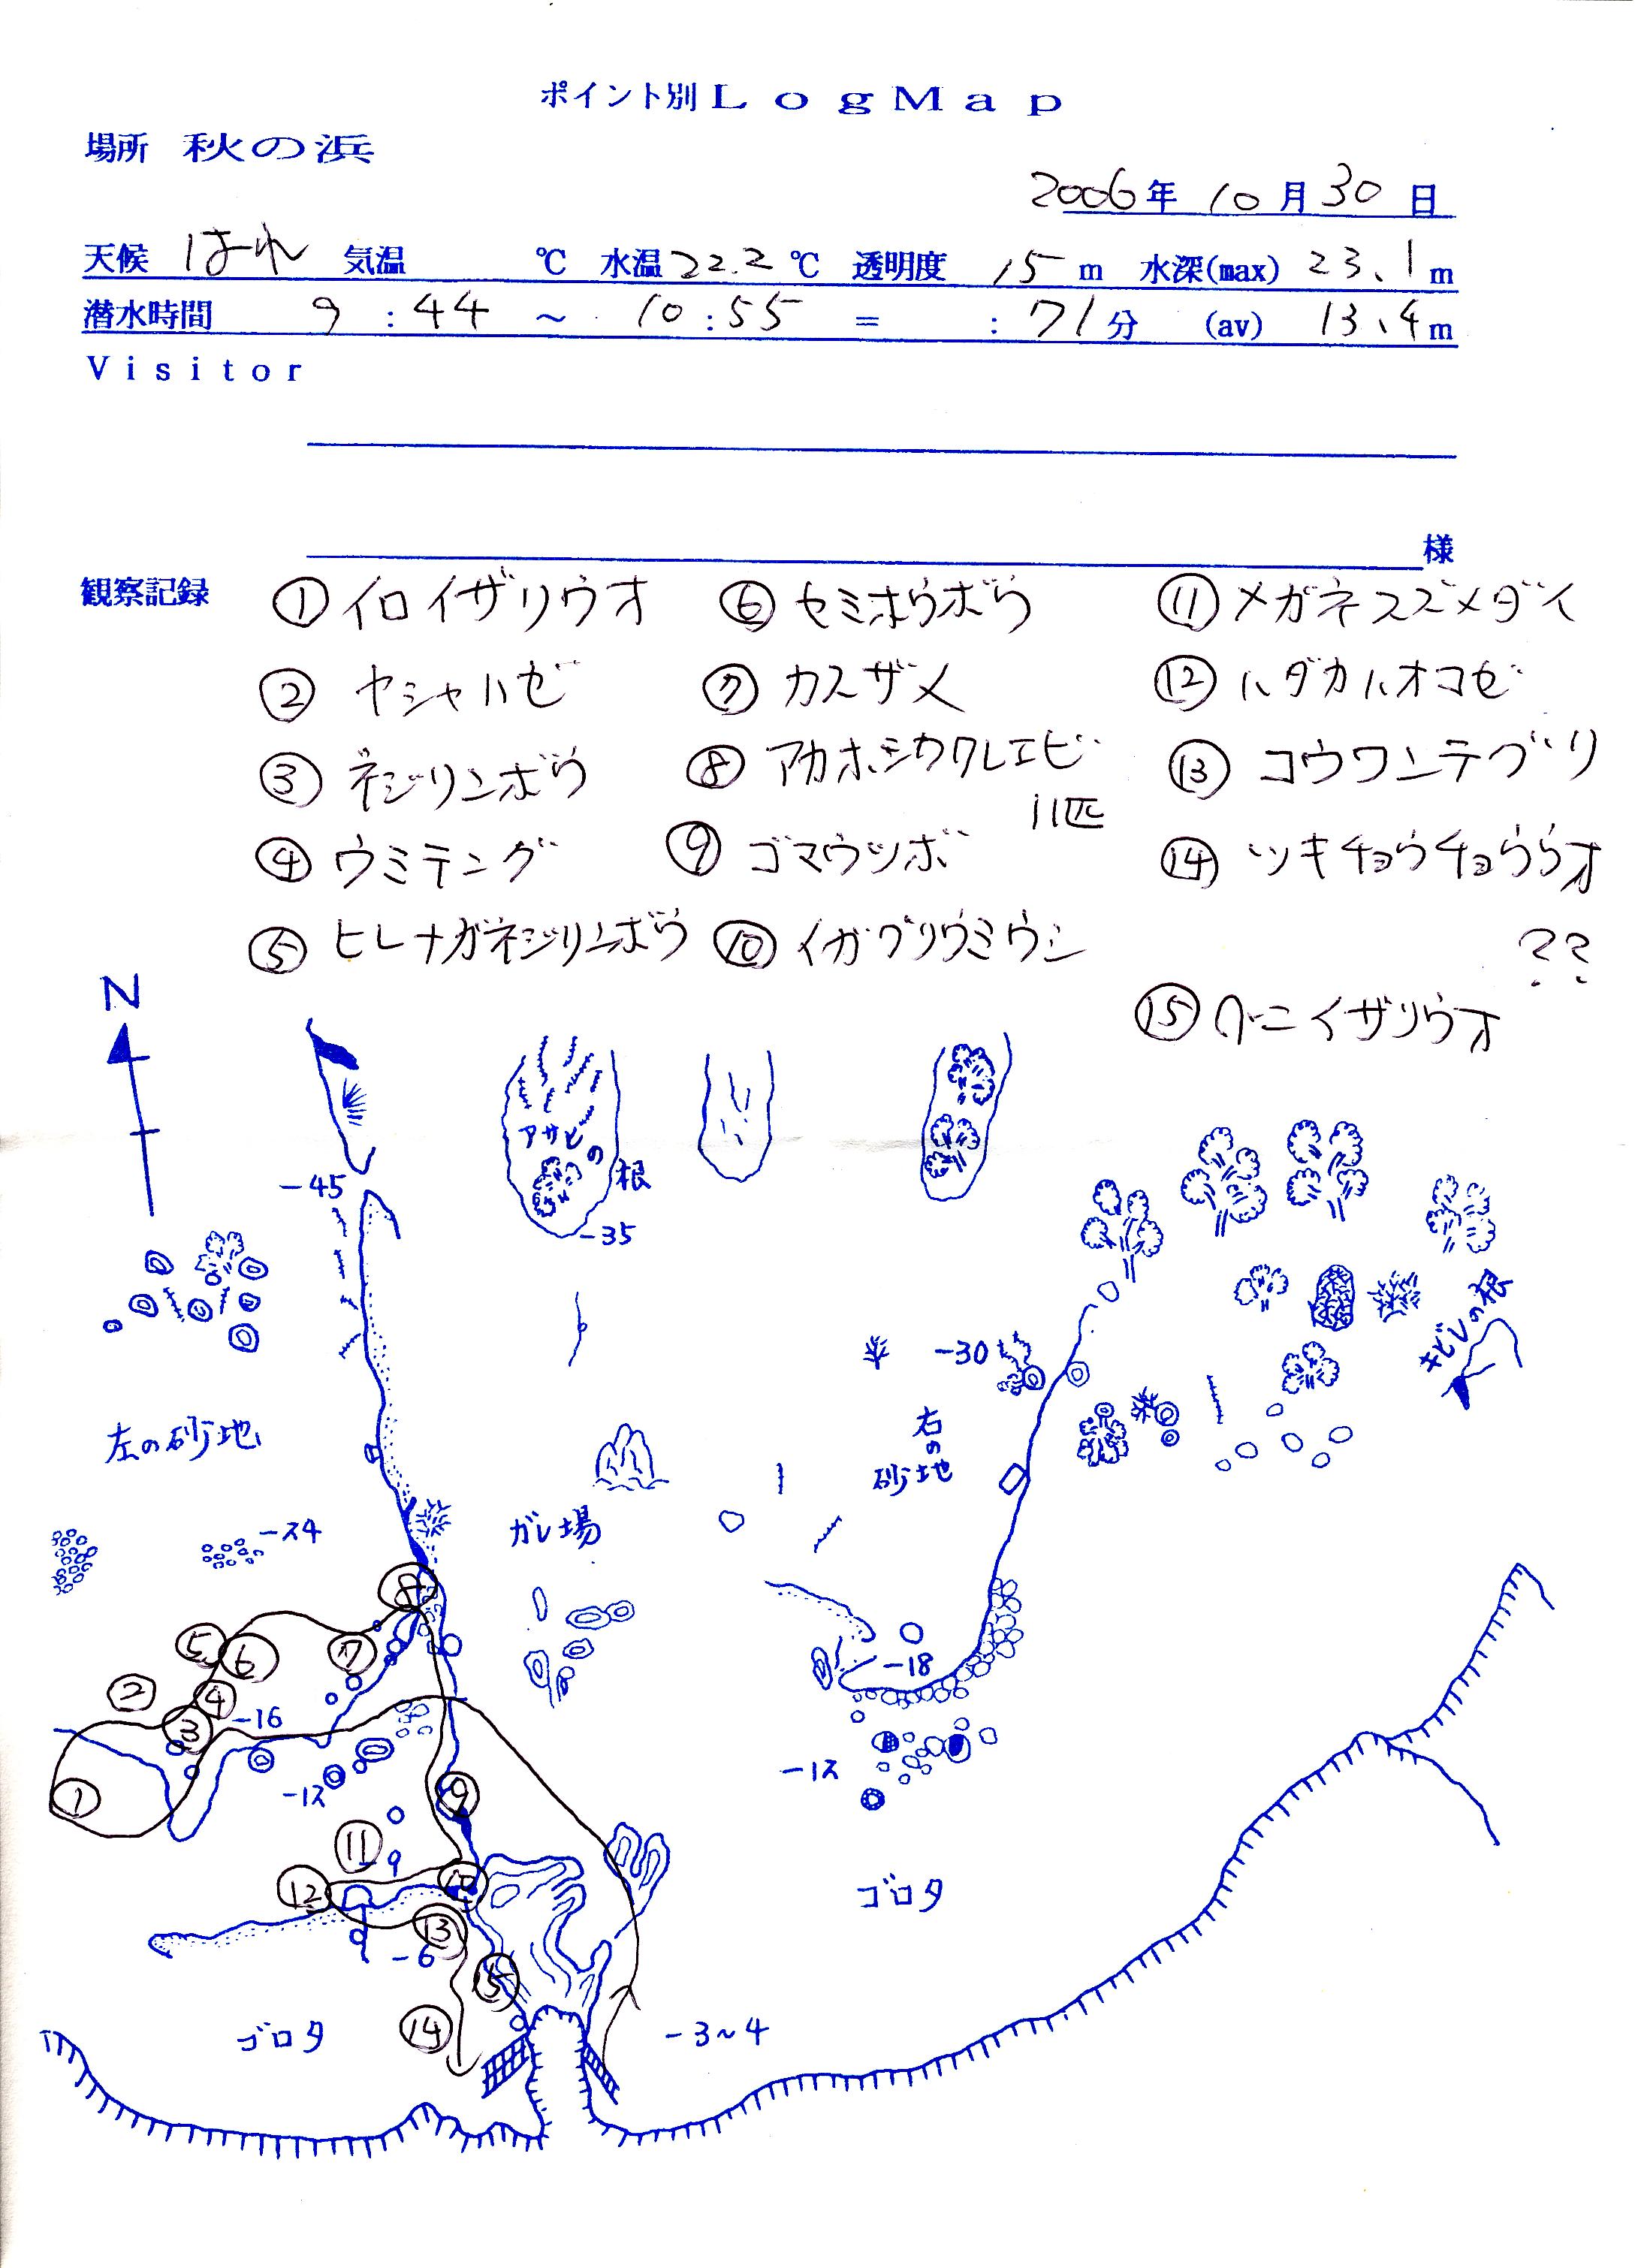 ポイント別LogMap
場所 秋の浜
2006年 10月30日
天候 はれ 気温 ℃ 水温22.2℃ 透明度 15m 水深(max) 23.1m
潜水時間 9:44 ~ 10:55 = :71分 (av) 13.4m
Visitor
様
観察記録
①イロイザリウオ ⑥セミホウボウ ⑪メガネスズメダイ
②ヤシャハゼ ⑦カスザメ ⑫ハダカハオコゼ
③ネジリンボウ ⑧アカホシカクレエビ ⑬コウワンテグリ
11匹
④ウミテング ⑨ゴマウツボ ⑭ツキチョウチョウウオ
⑤ヒレナガネジリンボウ ⑩イガグリウミウシ ??
⑮ベニイザリウオ
N
アサヒの根
-45
-35
-30
キビレの根
左の砂地
右の砂地
-24
ガレ場
⑧
⑤ ⑥ ⑦
② ④
③ -16
-18
①
-12
-12
⑨
⑪
-9
⑫ ⑩
ゴロタ
⑬
-6
⑮
⑭
ゴロタ
-3~4